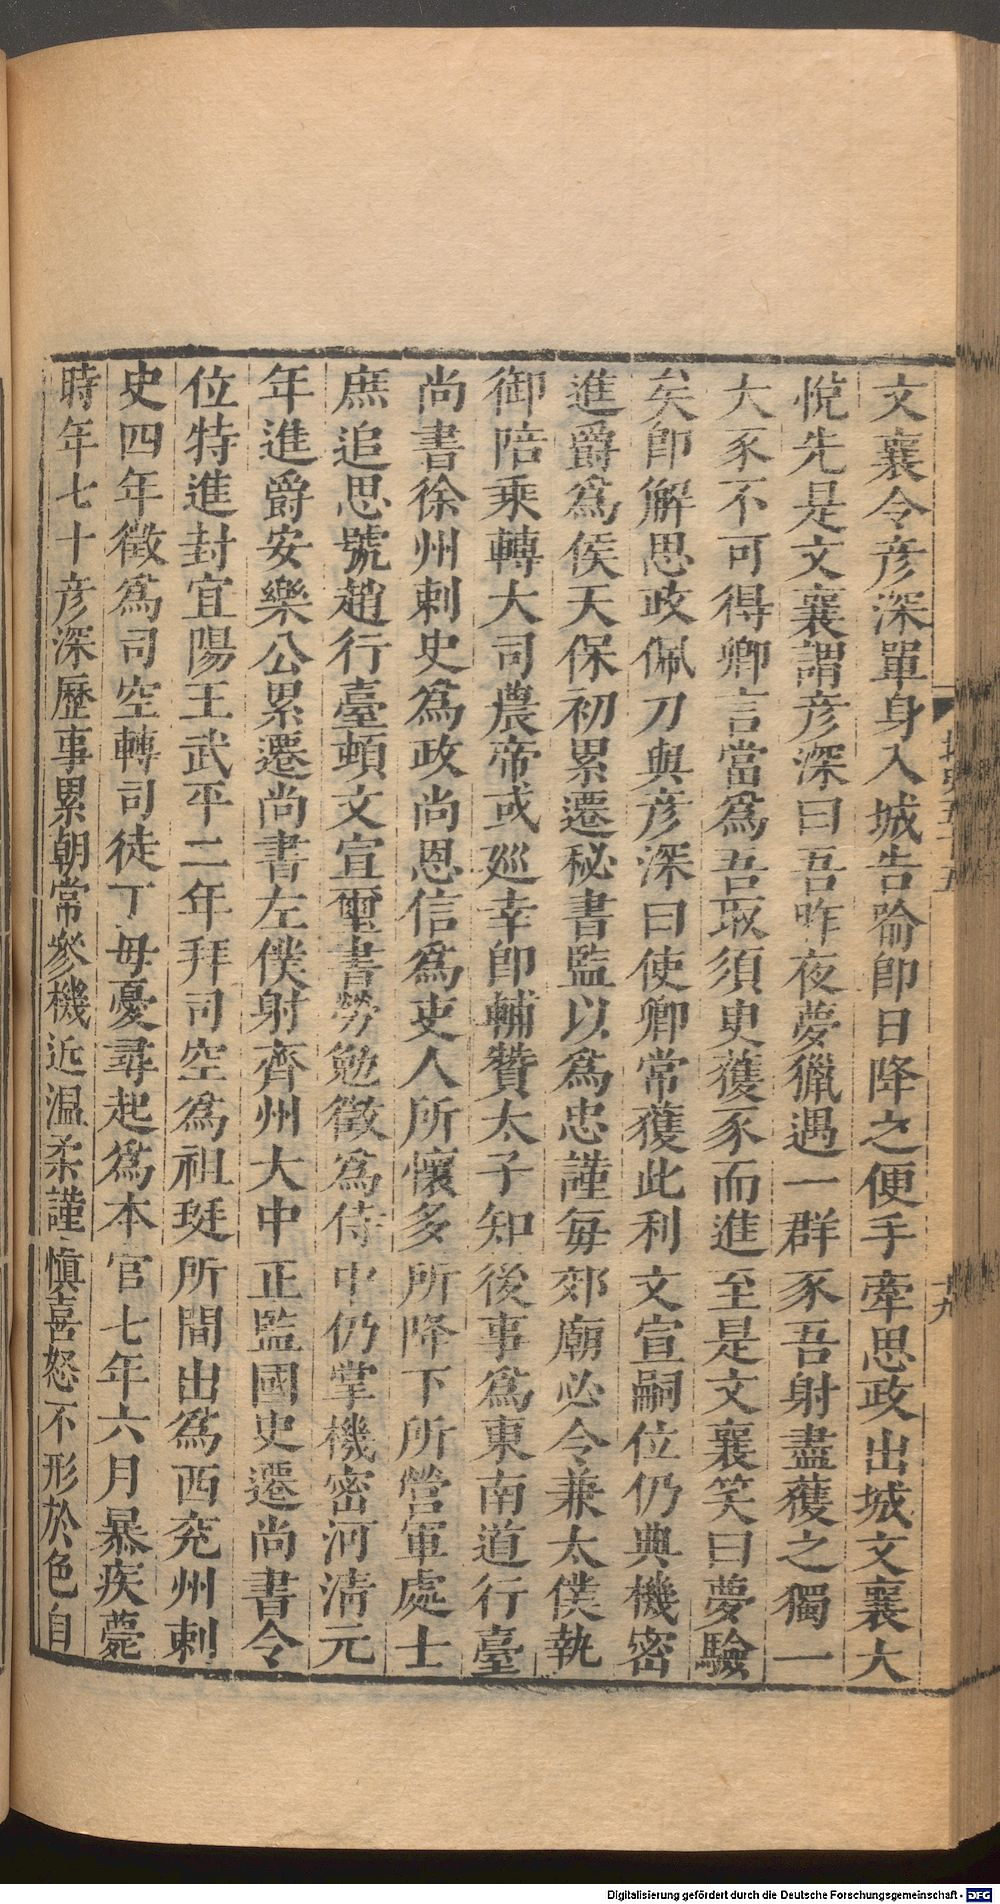 文襄令彥深單身入城告喻卽日降之便手牽思政出城文襄大
悅先是文襄謂彥深曰吾昨夜夢獵遇一群豕吾射盡獲之獨一
大豕不可得卿言當爲吾取須臾獲豕而進至是文襄笑曰夢驗
矣卽解思政佩刀與彥深曰使卿常獲此利文宣嗣位仍典機密
進爵爲侯天保初累遷秘書監以爲忠謹每郊廟必令兼太僕執
御陪乘轉大司農帝或巡幸卽輔贊太子知後事爲東南道行臺
尚書徐州刺史爲政尚恩信爲吏人所懷多所降下所營軍處士
庶追思號趙行臺頓文宣璽書勞勉徵爲侍中仍掌機密河清元
年進爵安樂公累遷尚書左僕射齊州大中正監國史遷尚書令
位特進封宜陽王武平二年拜司空爲祖珽所間出爲西兗州刺
史四年徵爲司空轉司徒丁母憂尋起爲本官七年六月暴疾薨
時年七十彥深歷事累朝常參機近温柔謹慎喜怒不形於色自
Digitalisierung gefördert durch die Deutsche Forschungsgemeinschaft - DFG